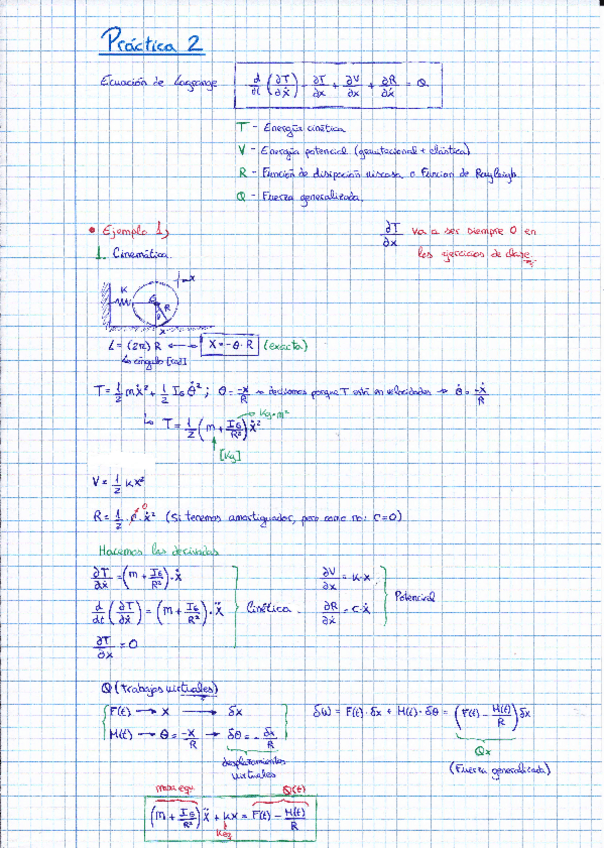 Práctica 2
Ecuación de Lagrange d/dt (∂T/∂ẋ) - ∂T/∂x + ∂V/∂x + ∂R/∂ẋ = Q
T - Energía cinética
V - Energía potencial (gravitacional + elástica)
R - Función de disipación viscosa o Función de Rayleigh.
Q - Fuerza generalizada.
• Ejemplo 1;
∂T/∂x va a ser siempre 0 en
los ejercicios de clase.
1. Cinemática.
K G R θ x +x
L = (2π) R ⟷ X = -θ·R (exacta)
↳ ángulo [rad]
T = 1/2 mẋ² + 1/2 I_G θ̇² ; θ = -x/R → derivamos porque T está en velocidades → θ̇ = -ẋ/R
↳ T = 1/2 (m + I_G/R²) ẋ² → Kg·m²
[Kg]
V = 1/2 Kx²
R = 1/2 · c · ẋ² 0 (Si tenemos amortiguador, pero como no: C=0)
Hacemos las derivadas
∂T/∂ẋ = (m + I_G/R²)·ẋ
d/dt (∂T/∂ẋ) = (m + I_G/R²)·ẍ Cinética.
∂T/∂x = 0
∂V/∂x = K·x
∂R/∂ẋ = C·ẋ Potencial
Q (trabajos virtuales)
F(t) → X → δx
M(t) → θ = -x/R → δθ = -δx/R
desplazamientos
virtuales
δW = F(t)·δx + M(t)·δθ = (F(t) - M(t)/R) δx
Qx
(Fuerza generalizada)
masa equ. Q(t)
(m + I_G/R²) ẍ + Kx = F(t) - M(t)/R
Keq